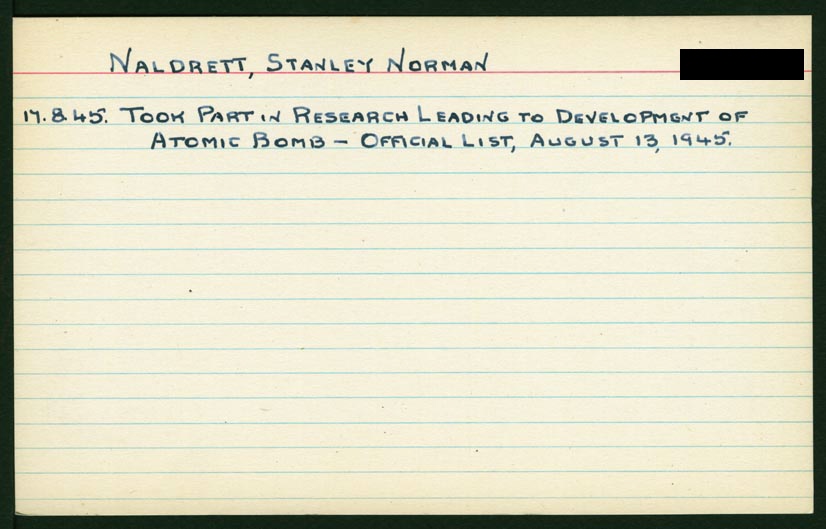 NALDRETT, STANLEY NORMAN
17.8.45. TOOK PART IN RESEARCH LEADING TO DEVELOPMENT OF
ATOMIC BOMB – OFFICIAL LIST, AUGUST 13, 1945.